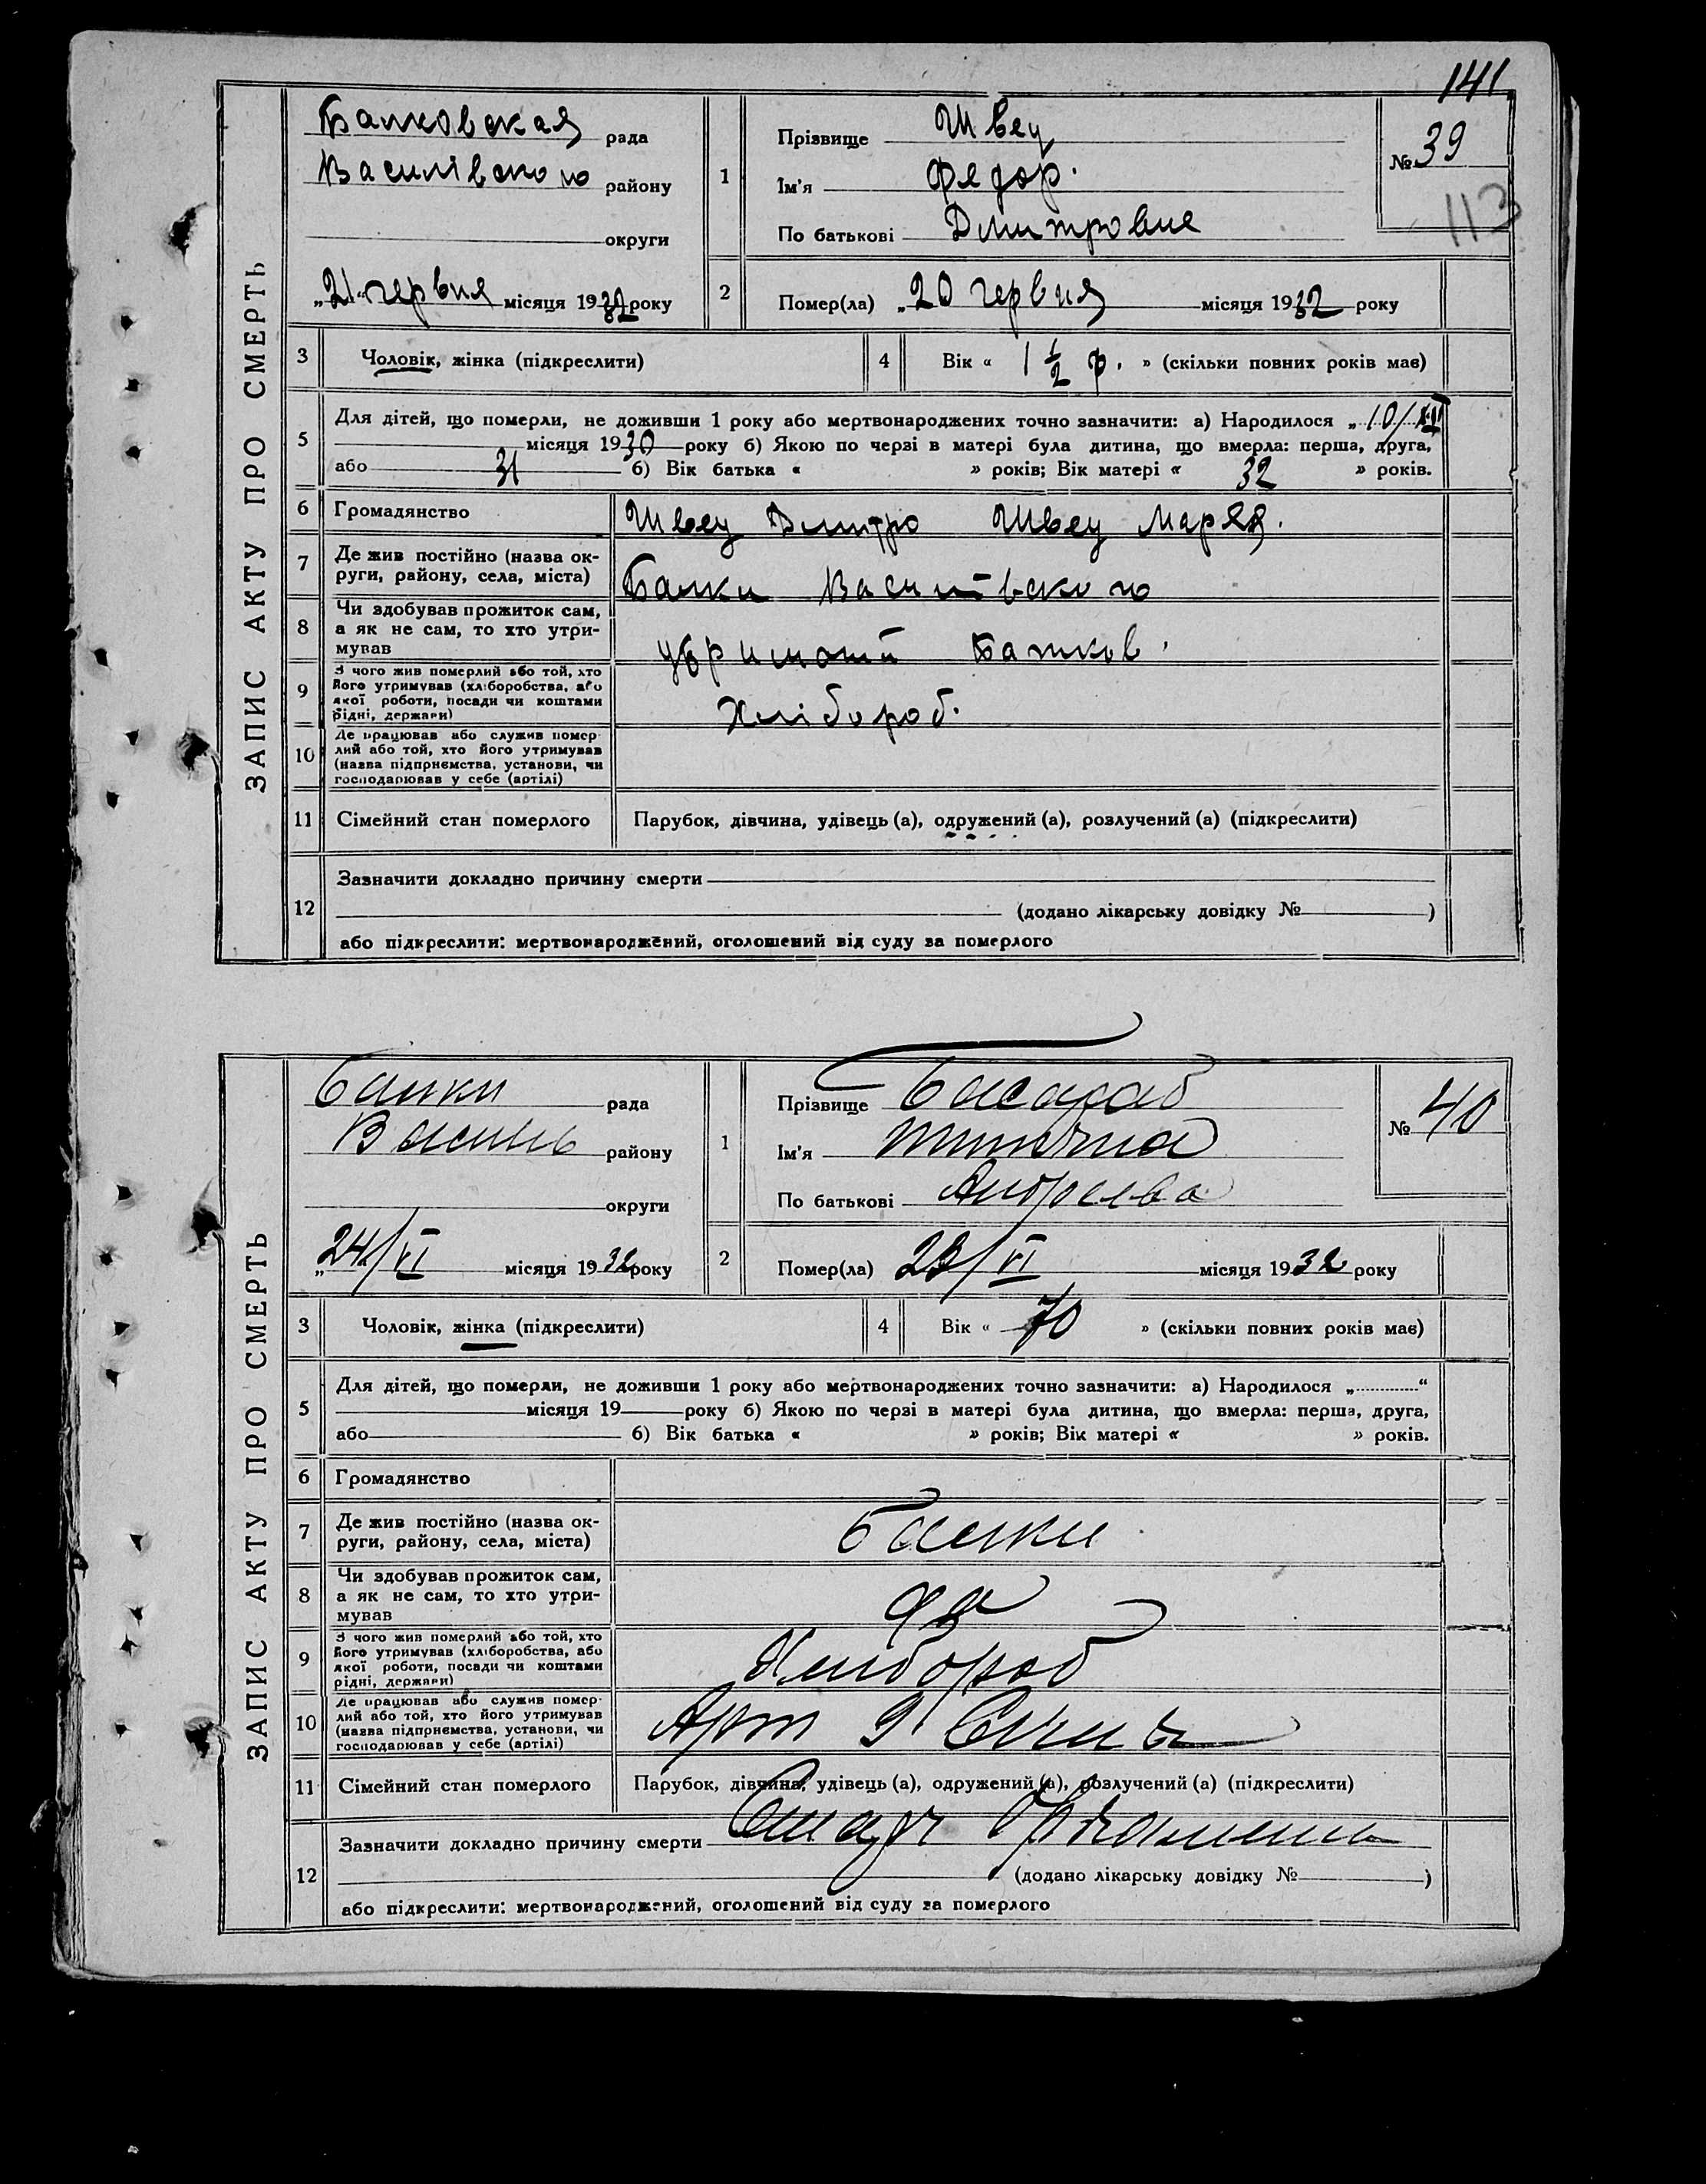 141
ЗАПИС АКТУ ПРО СМЕРТЬ
Балковская рада
Василівского району
округи
„21“ червня місяця 1932 року
1
Прізвище Швец
Ім'я Федор.
По батькові Дмитровие
№ 39
113
2
Помер(ла) „20 червня місяця 1932 року
3 Чоловік, жінка (підкреслити)
4 Вік « 1 1/2 р. » (скільки повних років має)
5 Для дітей, що померли, не доживши 1 року або мертвонароджених точно зазначити: а) Народилося „10/XII
місяця 1930 року б) Якою по черзі в матері була дитина, що вмерла: перша, друга,
або 31 б) Вік батька « » років; Вік матері « 32 » років.
6 Громадянство Швец Дмитро Швец Марея.
7 Де жив постійно (назва ок-
руги, району, села, міста) Балки Василівского
8 Чи здобував прожиток сам,
а як не сам, то хто утри-
мував Батков.
9 З чого жив померлий або той, хто
його утримував (хліборобства, або
якої роботи, посади чи коштами
рідні, держави) Хлібороб.
10 Де працював або служив помер-
лий або той, хто його утримував
(назва підприємства, установи, чи
господарював у себе (артілі)
11 Сімейний стан померлого Парубок, дівчина, удівець (а), одружений (а), розлучений (а) (підкреслити)
12 Зазначити докладно причину смерти
(додано лікарську довідку № )
або підкреслити: мертвонароджений, оголошений від суду за померлого
ЗАПИС АКТУ ПРО СМЕРТЬ
Балки рада
Василь району
округи
„24/VI місяця 1932 року
1
Прізвище Басараб
Ім'я
По батькові Андреева
№ 40
2
Помер(ла) 23/VI місяця 1932 року
3 Чоловік, жінка (підкреслити)
4 Вік « 70 » (скільки повних років має)
5 Для дітей, що померли, не доживши 1 року або мертвонароджених точно зазначити: а) Народилося „ “
місяця 19 року б) Якою по черзі в матері була дитина, що вмерла: перша, друга,
або б) Вік батька « » років; Вік матері « » років.
6 Громадянство
7 Де жив постійно (назва ок-
руги, району, села, міста) Балки
8 Чи здобував прожиток сам,
а як не сам, то хто утри-
мував да
9 З чого жив померлий або той, хто
його утримував (хліборобства, або
якої роботи, посади чи коштами
рідні, держави) Хлибороб
10 Де працював або служив помер-
лий або той, хто його утримував
(назва підприємства, установи, чи
господарював у себе (артілі) Арт
11 Сімейний стан померлого Парубок, дівчина, удівець (а), одружений (а), розлучений (а) (підкреслити)
12 Зазначити докладно причину смерти
(додано лікарську довідку № )
або підкреслити: мертвонароджений, оголошений від суду за померлого